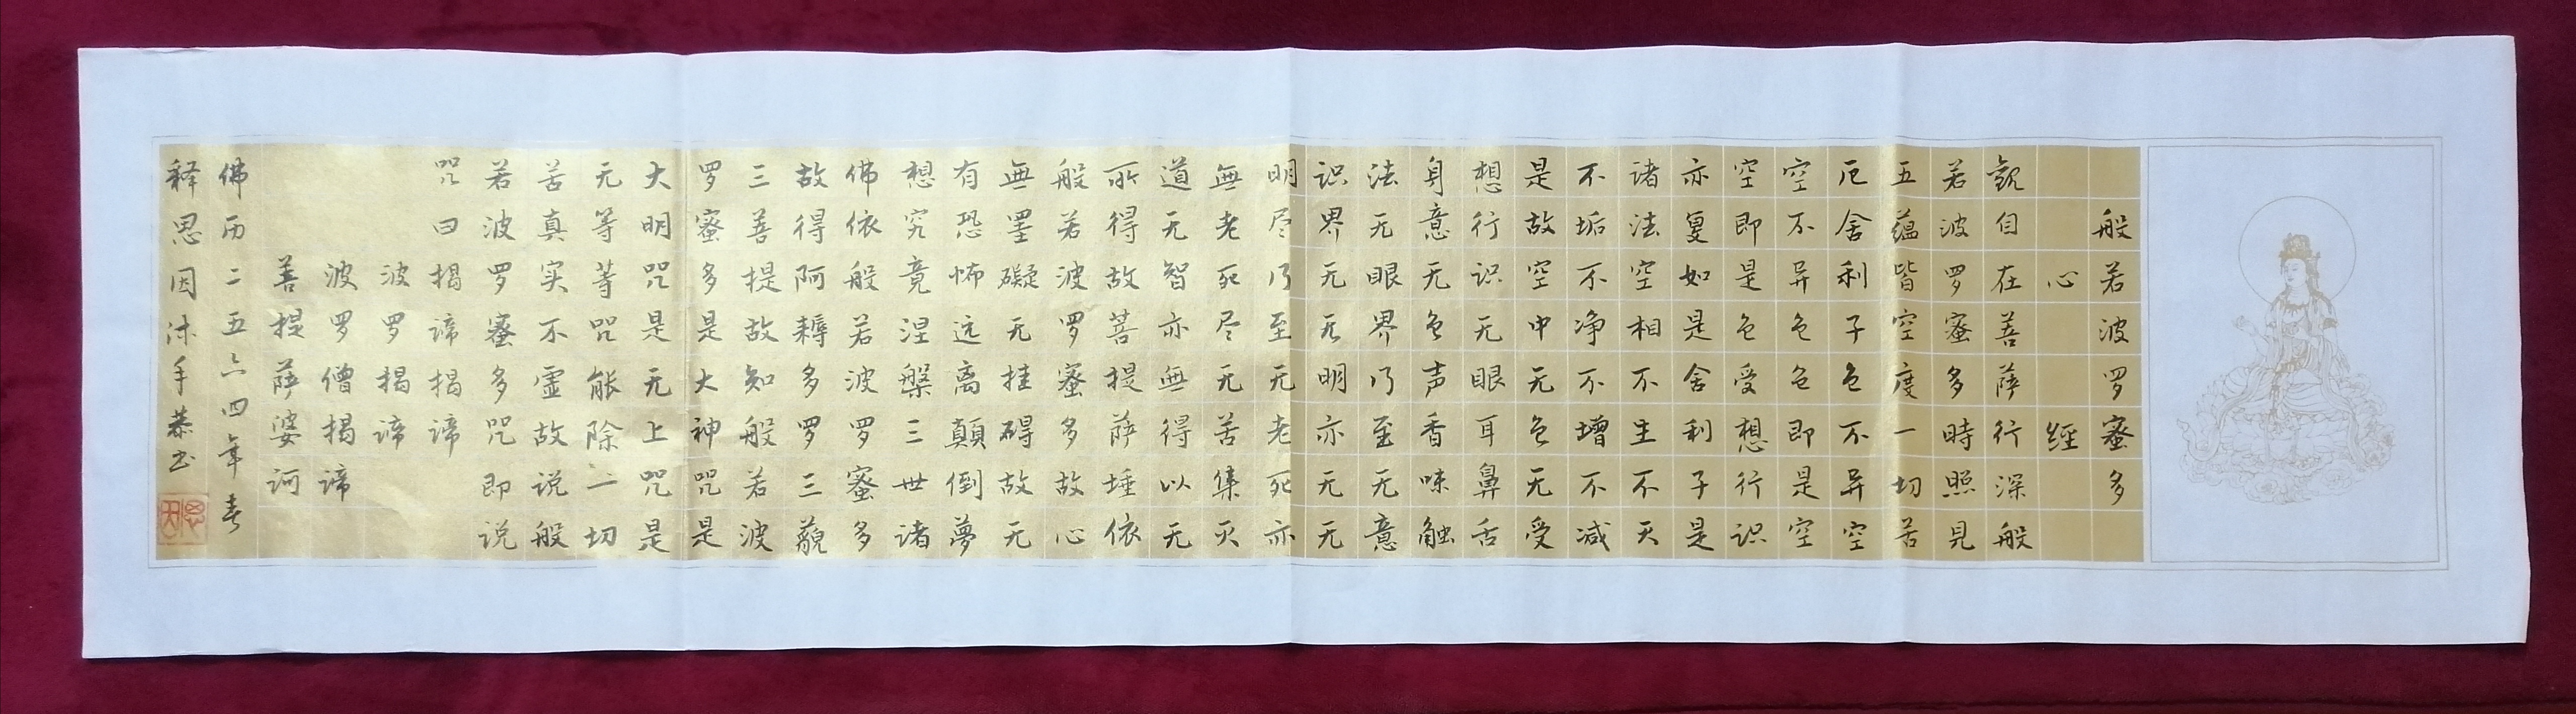 般若波罗蜜多
心經
觀自在菩萨行深般
若波罗蜜多時照見
五蕴皆空度一切苦
厄舍利子色不异空
空不异色色即是空
空即是色受想行识
亦复如是舍利子是
诸法空相不生不灭
不垢不净不增不减
是故空中无色无受
想行识无眼耳鼻舌
身意无色声香味触
法无眼界乃至无意
识界无无明亦无无
明尽乃至无老死亦
無老死尽无苦集灭
道无智亦無得以无
所得故菩提萨埵依
般若波罗蜜多故心
無罣礙无挂碍故无
有恐怖远离顛倒夢
想究竟涅槃三世诸
佛依般若波罗蜜多
故得阿耨多罗三藐
三菩提故知般若波
罗蜜多是大神咒是
大明咒是无上咒是
无等等咒能除一切
苦真实不虚故说般
若波罗蜜多咒即说
咒曰揭谛揭谛
波罗揭谛
波罗僧揭谛
善提萨婆诃
佛历二五六四年春
释思因沐手恭书
思因